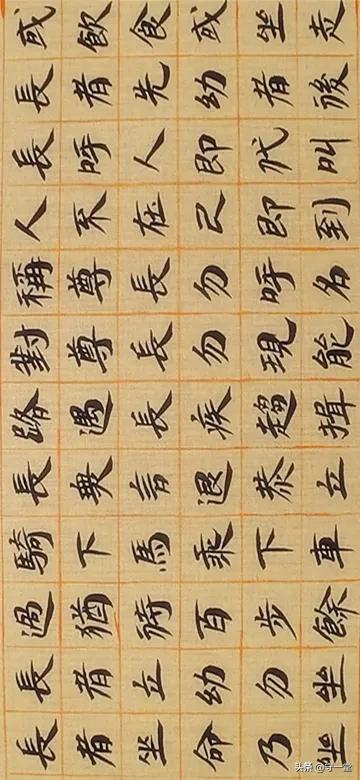 或飲食或坐走
長者先幼者後
長呼人即代叫
人不在己即到
稱尊長勿呼名
對尊長勿現能
路遇長疾趨揖
長無言退恭立
騎下馬乘下車
過猶待百步餘
長者立幼勿坐
長者坐命乃坐
头条 @守一堂